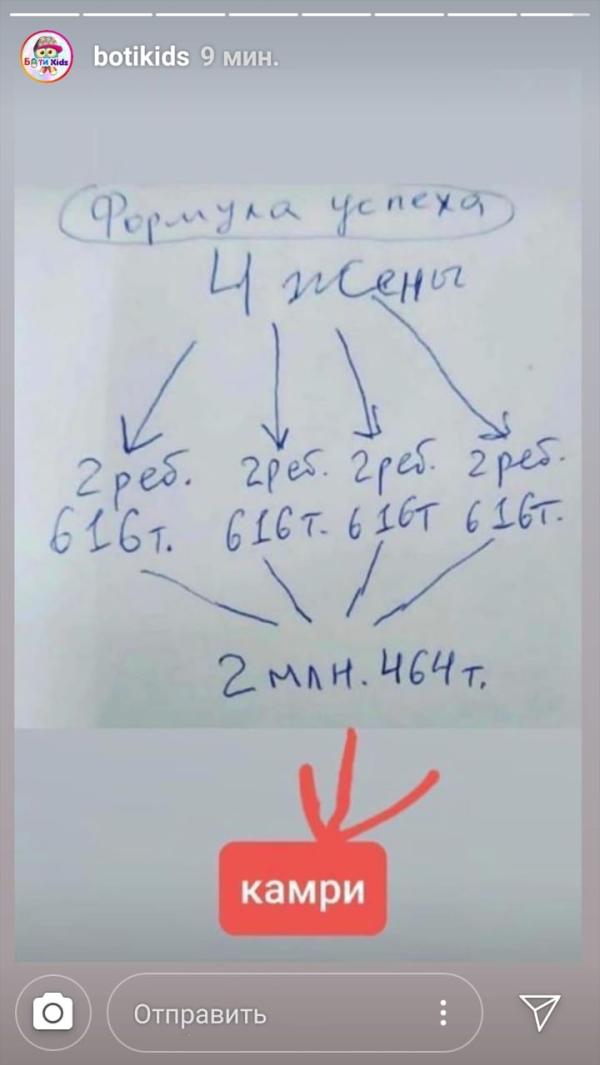 БАТИ Kids
botikids 9 мин.
Формула успеха
4 жены
2 реб. 2 реб. 2 реб. 2 реб.
616 т. 616 т. 616 т 616 т.
2 млн. 464 т.
камри
Отправить